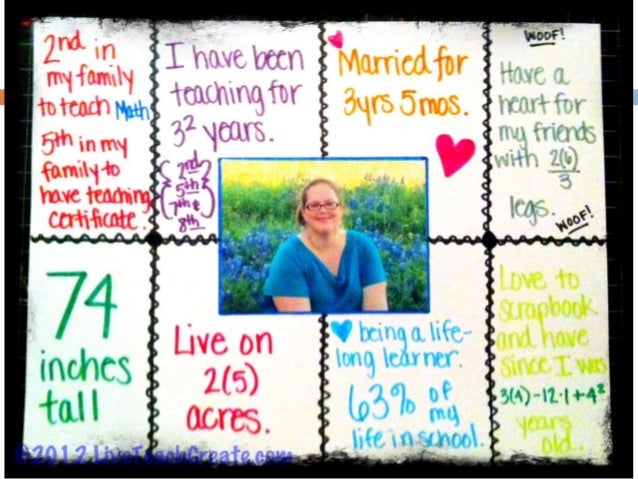 2nd in
my family
to teach Math
5th in my
family to
have teaching
certificate.
I have been
teaching for
3² years.
{2nd}
{5th}
(7th &)
8th
Married for
3yrs 5mos.
WOOF!
Have a
heart for
my friends
with 2(6)
3
legs.
WOOF!
74
inches
tall
Live on
2(5)
acres.
being a life-
long learner.
63% of
my
life in school.
Love to
scrapbook
and have
since I was
3(4)-12·1+4²
years
old..
©2012 LiveTeachCreate.com